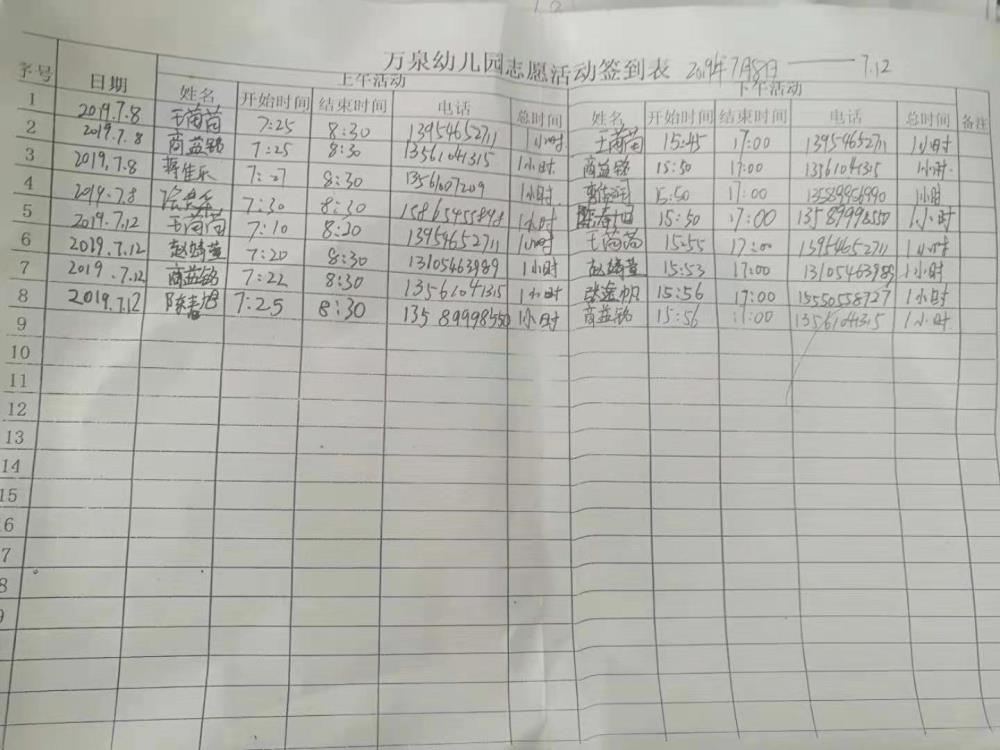 万泉幼儿园志愿活动签到表 2019年7月8日——7.12
序号 日期 上午活动 下午活动 备注
姓名 开始时间 结束时间 电话 总时间 姓名 开始时间 结束时间 电话 总时间
1 2019.7.8 王苘苘 7:25 8:30 13954652711 1小时 王苘苘 15:45 17:00 13954652711 1小时
2 2019.7.8 商益铭 7:25 8:30 13561041315 1小时 商益铭 15:50 17:00 13561041315 1小时
3 2019.7.8 蒋佳乐 7:27 8:30 13561007209 1小时 15:50 17:00 13589956990 1小时
4 2019.7.8 7:30 8:30 1小时 15:50 17:00 13589998550 1小时
5 2019.7.12 王苘苘 7:10 8:20 13954652711 1小时 王苘苘 15:55 17:00 13954652711 1小时
6 2019.7.12 赵婧萱 7:20 8:30 13105463989 1小时 赵婧萱 15:53 17:00 13105463989 1小时
7 2019.7.12 商益铭 7:22 8:30 13561041315 1小时 15:56 17:00 15550558727 1小时
8 2019.7.12 7:25 8:30 13589998550 1小时 商益铭 15:56 17:00 13561041315 1小时
9
10
11
12
13
14
15
6
7
8
9